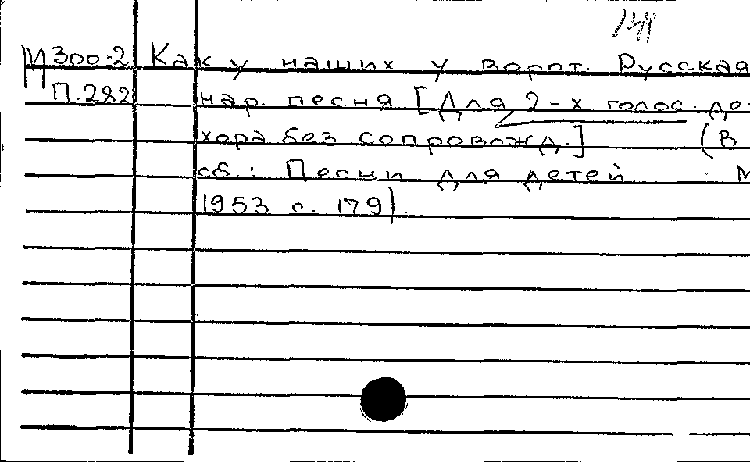 М 300-2 Как у наших у ворот. Русская
П.282 нар. песня [Для 2-х голос. де-
хора без сопровожд.] (В
сб.: Песни для детей М
1953 с. 179)